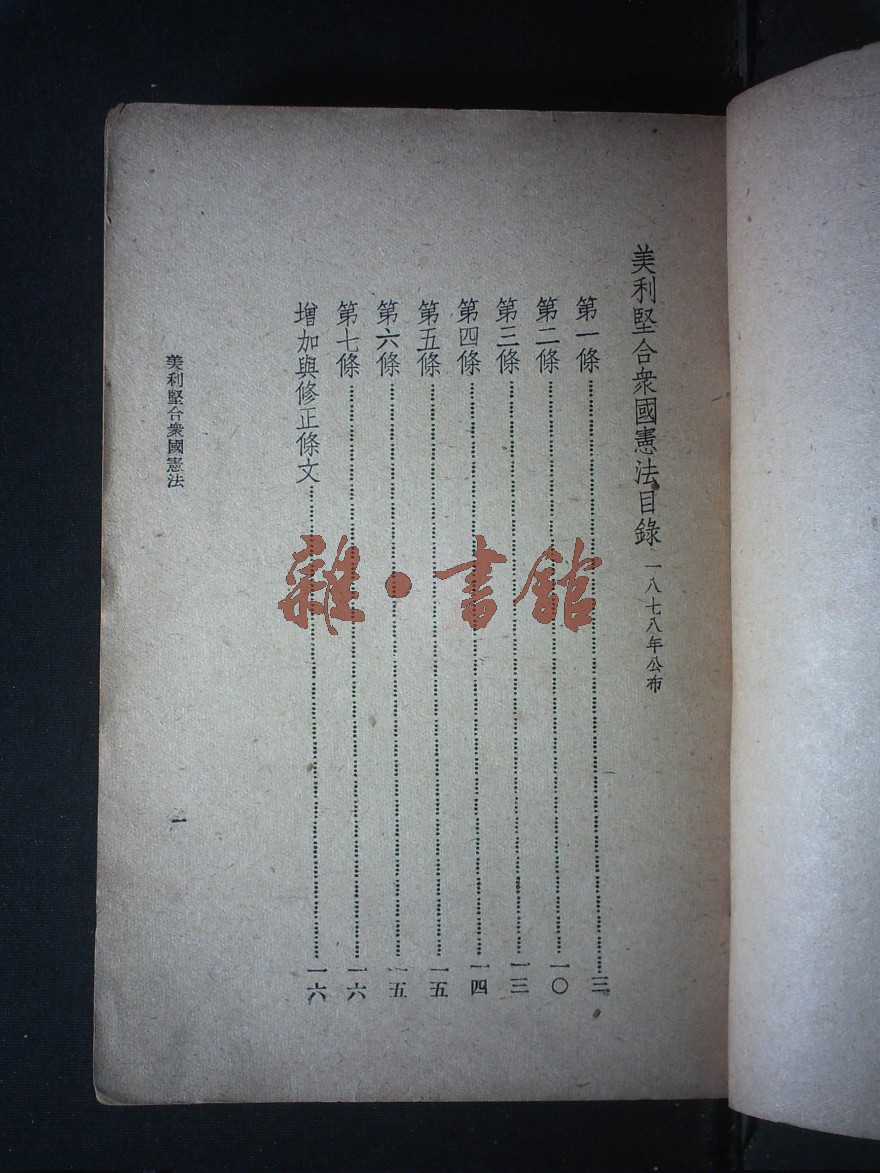 美利堅合衆國憲法目錄 一八七八年公布
第一條……三
第二條……一〇
第三條……一三
第四條……一四
第五條……一五
第六條……一五
第七條……一六
增加與修正條文……一六
美利堅合衆國憲法
一
雜·書館